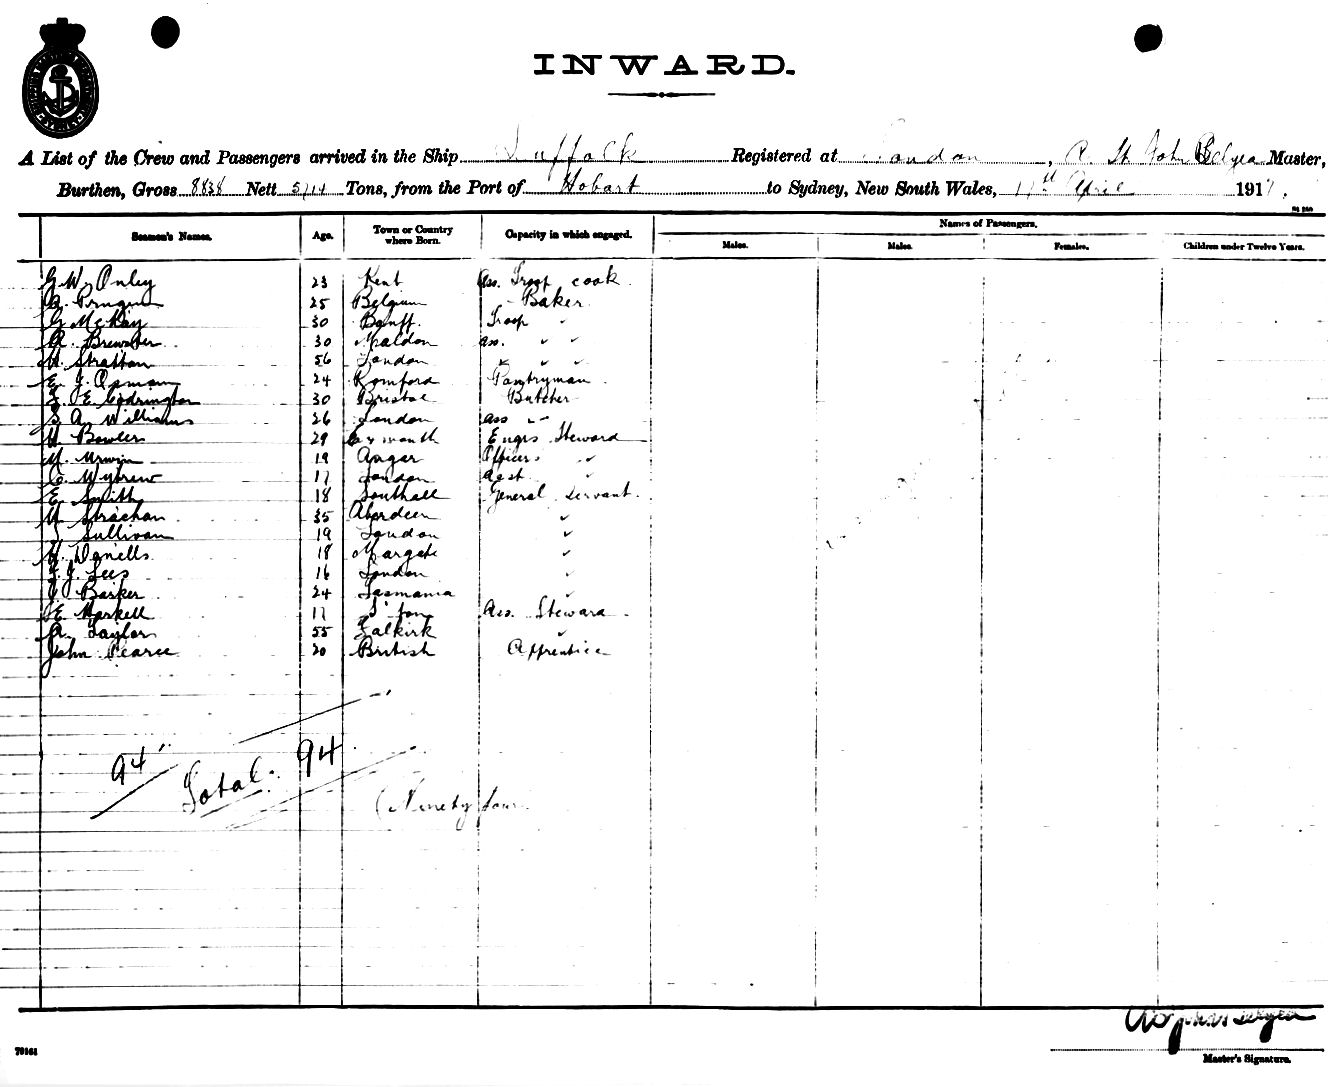 INWARD.
A List of the Crew and Passengers arrived in the Ship Suffolk Registered at London, A. St. John Belyea Master,
Burthen, Gross 8838 Nett Tons, from the Port of Hobart to Sydney, New South Wales, 17th April 1917.
Names of Passengers.
Seamen's Names. Age. Town or Country where Born. Capacity in which engaged. Males. Males. Females. Children under Twelve Years.
G. W. Onley 23 Kent Ass. Troop cook
25 Belgium Baker
G. McKay 30 Banff Troop "
A. Brewster 30 Maldon ass. " "
H. Stratton 56 London " " "
E. J. Osman 24 Romford Pantryman
F. E. Codrington 30 Bristol Butcher
S. A. Williams 26 London ass "
H. Bowlers 29 Exmouth Engrs Steward
M. Urwin 19 Officers "
C. Wybrew 17 London Asst "
E. Smith 18 Southall General Servant
W. Strachan 35 Aberdeen "
J. Sullivan 19 London "
H. Daniells 18 Margate "
F. J. Lees 16 London "
J. Barker 24 Tasmania "
E. Markell 17 S'ton Ass. Steward
A. Taylor 55 Falkirk "
John Pearce 20 British Apprentice
94 Total: 94
(Ninety four
Master's Signature.
79161